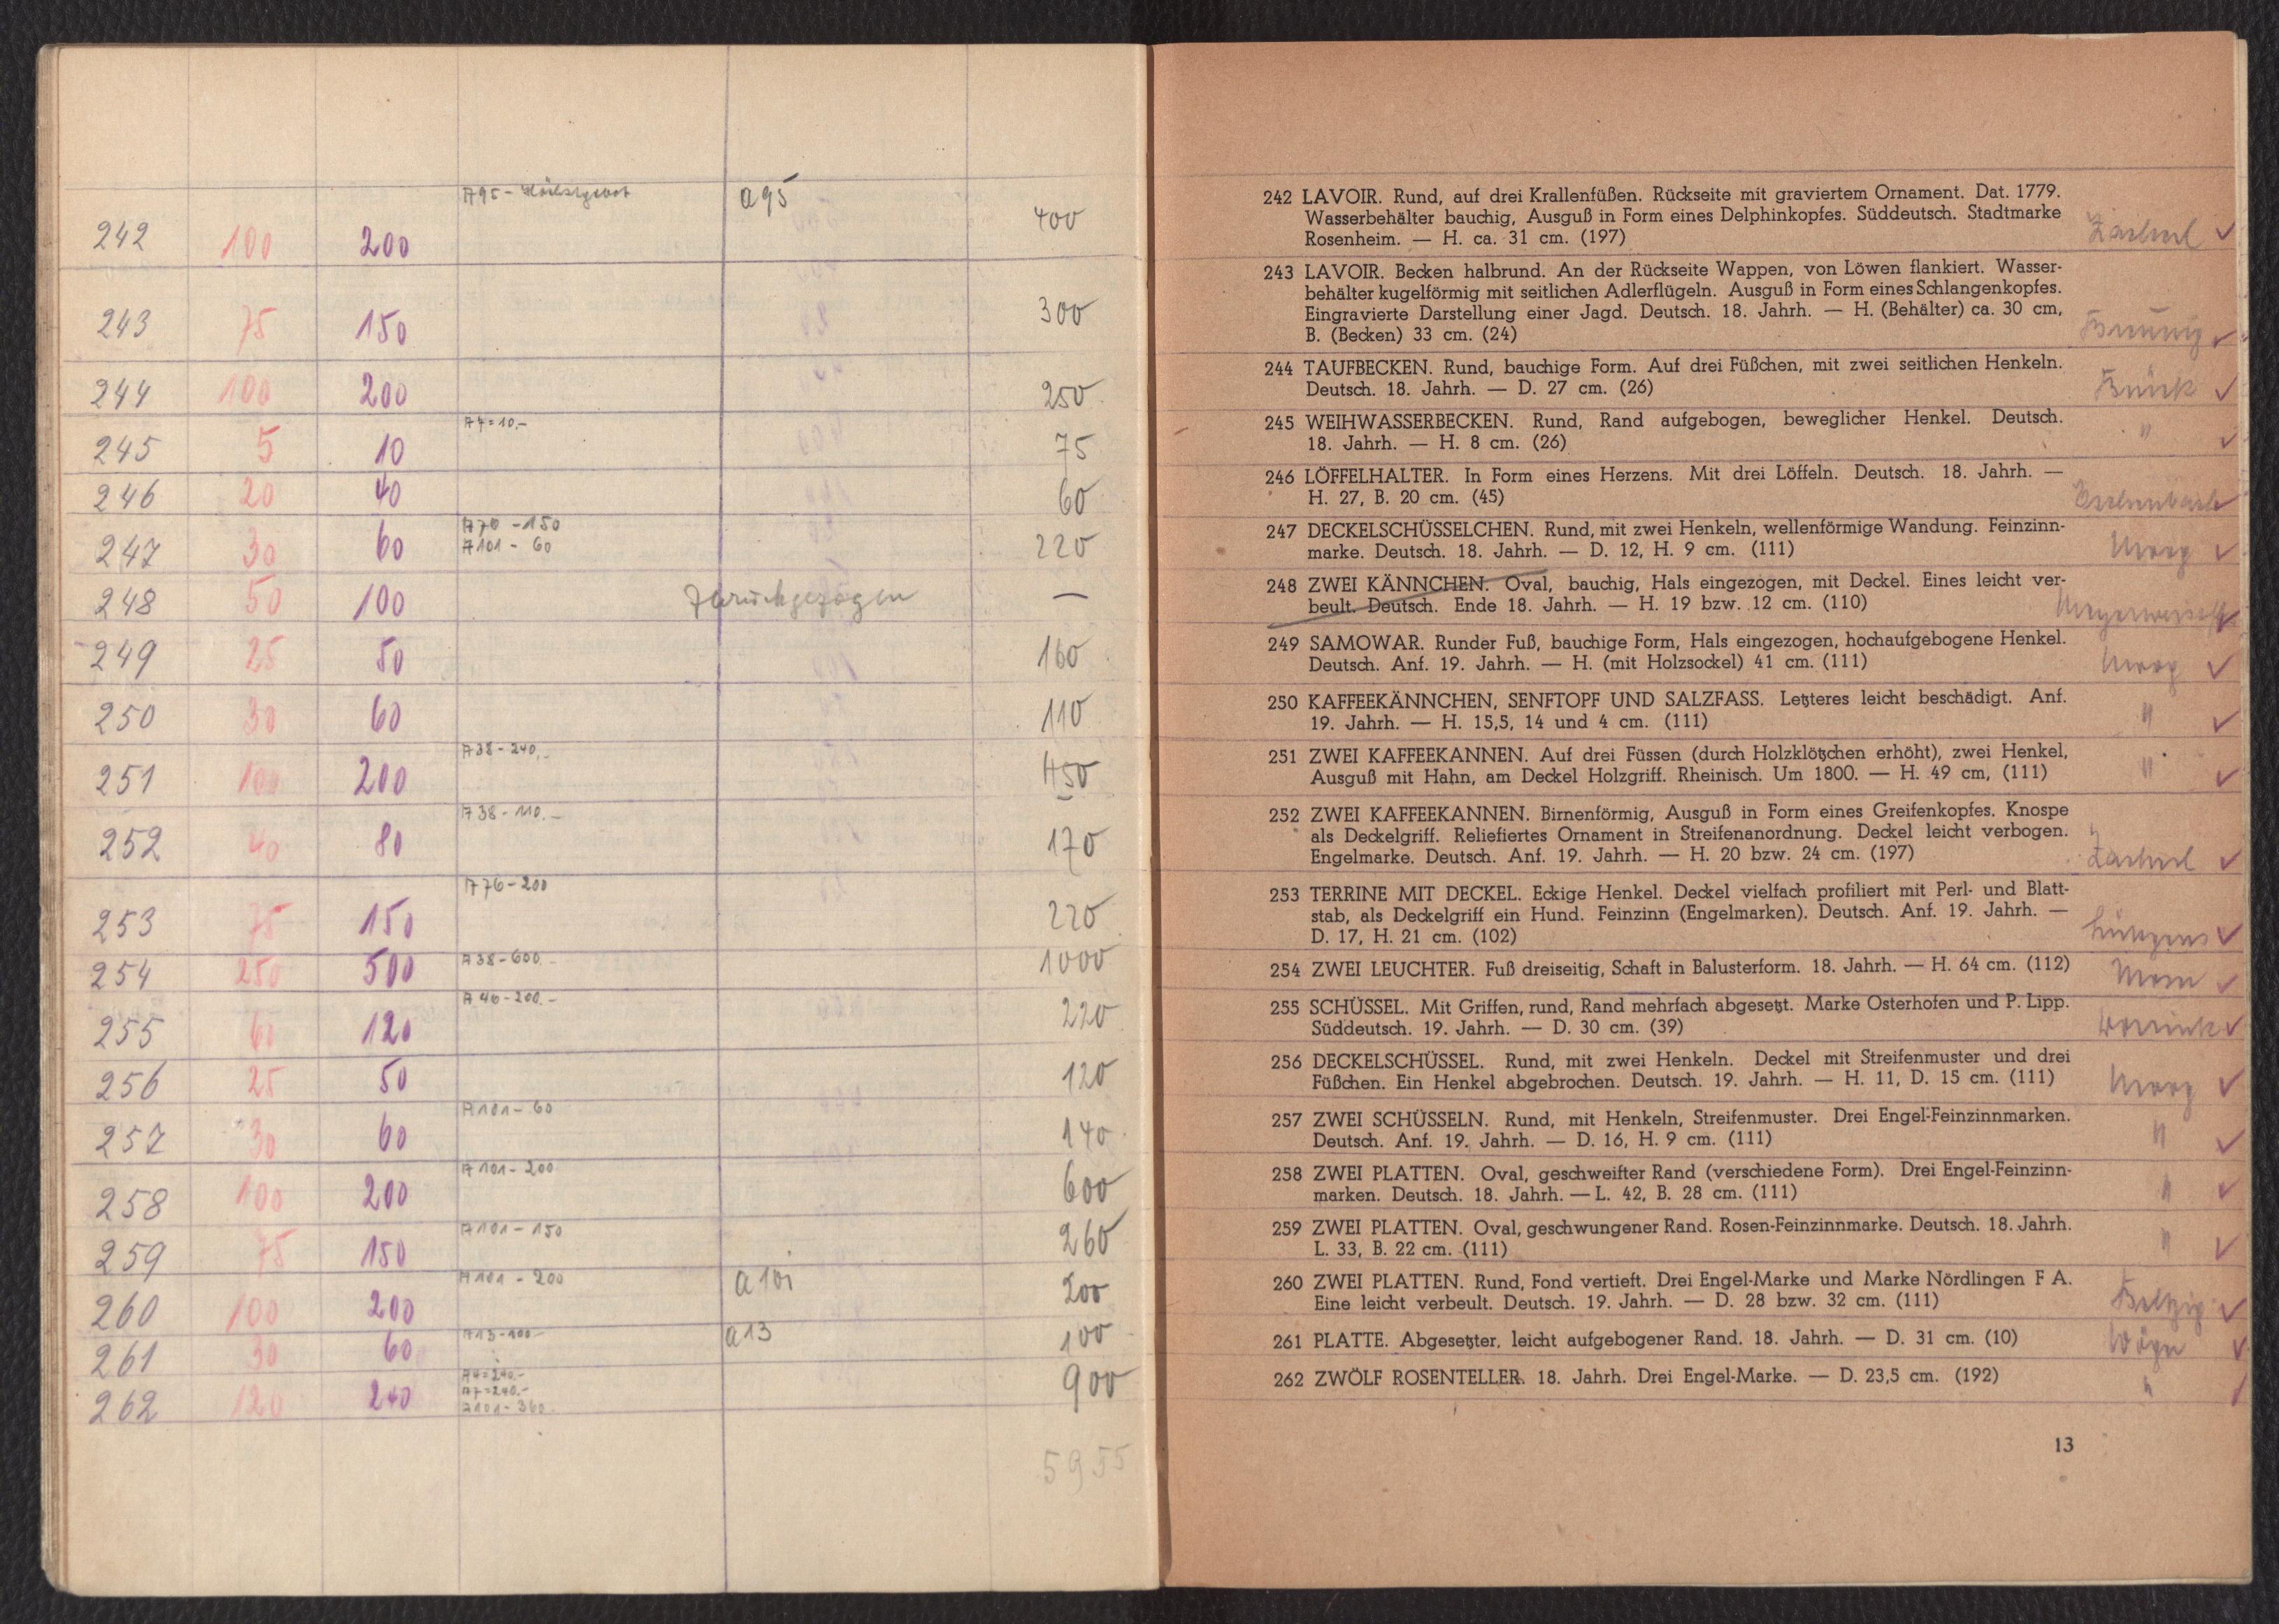 A95 - Höchstgebot a95
242 100 200 400
243 75 150 300
244 100 200 250
A4=10.-
245 5 10 75
246 20 40 60
A70 - 150
247 30 60 A101 - 60 220
248 50 100 zurückgezogen —
249 25 50 160
250 30 60 110
A38 - 240.-
251 100 200 450
A38 - 110.-
252 40 80 170
A76 - 200
253 75 150 220
254 250 500 A38 - 600.- 1000
A46 - 200.-
255 60 120 220
256 25 50 120
A101 - 60
257 30 60 140
A101 - 200
258 100 200 600
A101 - 150
259 75 150 260
A101 - 200 a101
260 100 200 200
A13 - 100 a13
261 30 60 100
A4=240.-
A7=240.-
262 120 240 A101 - 360 900
5955
242 LAVOIR. Rund, auf drei Krallenfüßen. Rückseite mit graviertem Ornament. Dat. 1779.
Wasserbehälter bauchig, Ausguß in Form eines Delphinkopfes. Süddeutsch. Stadtmarke
Rosenheim. — H. ca. 31 cm. (197) Zacherl ✓
243 LAVOIR. Becken halbrund. An der Rückseite Wappen, von Löwen flankiert. Wasser-
behälter kugelförmig mit seitlichen Adlerflügeln. Ausguß in Form eines Schlangenkopfes.
Eingravierte Darstellung einer Jagd. Deutsch. 18. Jahrh. — H. (Behälter) ca. 30 cm,
B. (Becken) 33 cm. (24) ✓
244 TAUFBECKEN. Rund, bauchige Form. Auf drei Füßchen, mit zwei seitlichen Henkeln.
Deutsch. 18. Jahrh. — D. 27 cm. (26) ✓
245 WEIHWASSERBECKEN. Rund, Rand aufgebogen, beweglicher Henkel. Deutsch.
18. Jahrh. — H. 8 cm. (26) " ✓
246 LÖFFELHALTER. In Form eines Herzens. Mit drei Löffeln. Deutsch. 18. Jahrh. —
H. 27, B. 20 cm. (45) Eschenbach ✓
247 DECKELSCHÜSSELCHEN. Rund, mit zwei Henkeln, wellenförmige Wandung. Feinzinn-
marke. Deutsch. 18. Jahrh. — D. 12, H. 9 cm. (111) ✓
248 ZWEI KÄNNCHEN. Oval, bauchig, Hals eingezogen, mit Deckel. Eines leicht ver-
beult. Deutsch. Ende 18. Jahrh. — H. 19 bzw. 12 cm. (110) ✓
249 SAMOWAR. Runder Fuß, bauchige Form, Hals eingezogen, hochaufgebogene Henkel.
Deutsch. Anf. 19. Jahrh. — H. (mit Holzsockel) 41 cm. (111) ✓
250 KAFFEEKÄNNCHEN, SENFTOPF UND SALZFASS. Letzteres leicht beschädigt. Anf.
19. Jahrh. — H. 15,5, 14 und 4 cm. (111) " ✓
251 ZWEI KAFFEEKANNEN. Auf drei Füssen (durch Holzklötzchen erhöht), zwei Henkel,
Ausguß mit Hahn, am Deckel Holzgriff. Rheinisch. Um 1800. — H. 49 cm, (111) " ✓
252 ZWEI KAFFEEKANNEN. Birnenförmig, Ausguß in Form eines Greifenkopfes. Knospe
als Deckelgriff. Reliefiertes Ornament in Streifenanordnung. Deckel leicht verbogen.
Engelmarke. Deutsch. Anf. 19. Jahrh. — H. 20 bzw. 24 cm. (197) Zacherl ✓
253 TERRINE MIT DECKEL. Eckige Henkel. Deckel vielfach profiliert mit Perl- und Blatt-
stab, als Deckelgriff ein Hund. Feinzinn (Engelmarken). Deutsch. Anf. 19. Jahrh. —
D. 17, H. 21 cm. (102) ✓
254 ZWEI LEUCHTER. Fuß dreiseitig, Schaft in Balusterform. 18. Jahrh. — H. 64 cm. (112) ✓
255 SCHÜSSEL. Mit Griffen, rund, Rand mehrfach abgesetzt. Marke Osterhofen und P. Lipp.
Süddeutsch. 19. Jahrh. — D. 30 cm. (39) ✓
256 DECKELSCHÜSSEL. Rund, mit zwei Henkeln. Deckel mit Streifenmuster und drei
Füßchen. Ein Henkel abgebrochen. Deutsch. 19. Jahrh. — H. 11, D. 15 cm. (111) ✓
257 ZWEI SCHÜSSELN. Rund, mit Henkeln, Streifenmuster. Drei Engel-Feinzinnmarken.
Deutsch. Anf. 19. Jahrh. — D. 16, H. 9 cm. (111) " ✓
258 ZWEI PLATTEN. Oval, geschweifter Rand (verschiedene Form). Drei Engel-Feinzinn-
marken. Deutsch. 18. Jahrh. — L. 42, B. 28 cm. (111) " ✓
259 ZWEI PLATTEN. Oval, geschwungener Rand. Rosen-Feinzinnmarke. Deutsch. 18. Jahrh.
L. 33, B. 22 cm. (111) " ✓
260 ZWEI PLATTEN. Rund, Fond vertieft. Drei Engel-Marke und Marke Nördlingen F A.
Eine leicht verbeult. Deutsch. 19. Jahrh. — D. 28 bzw. 32 cm. (111) ✓
261 PLATTE. Abgesetzter, leicht aufgebogener Rand. 18. Jahrh. — D. 31 cm. (10) ✓
262 ZWÖLF ROSENTELLER. 18. Jahrh. Drei Engel-Marke. — D. 23,5 cm. (192) " ✓
13